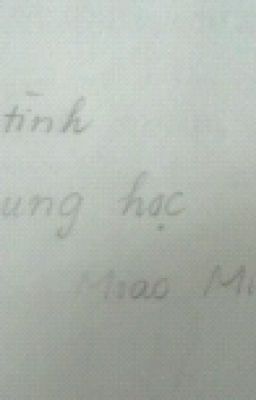 tình
ung học
Miao Mi